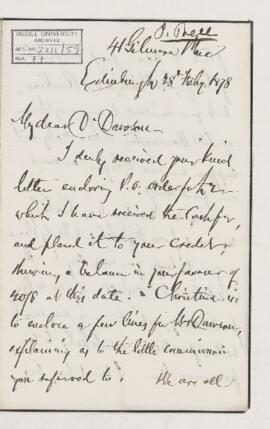 McGILL UNIVERSITY
ARCHIVES
ACC. NO. 2211/59
REF.
41 Gilmore Place
Edinburgh 28th Feby. 1878
My dear Dr Dawson
I duly received your kind
letter enclosing P.O. order for
which I have received the Cash for,
and placed it to your credit,
showing a balance in your favour of
at this date. Christina is
to enclose a few lines for Mrs Dawson,
explaining as to the little commission
you referred to. We are all